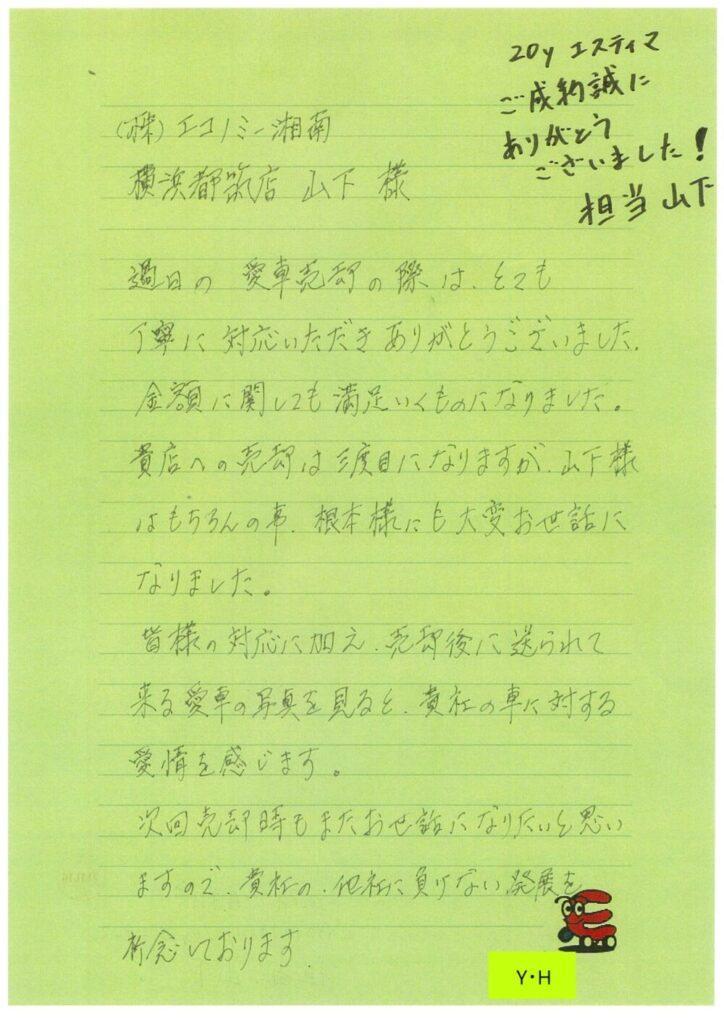 20y エスティマ
ご成約誠に
ありがとう
ございました!
担当 山下
(株)エコノミー湘南
横浜都筑店 山下 様
過日の 愛車売却の際は、とても
丁寧に対応いただきありがとうございました。
金額に関しても満足いくものになりました。
貴店への売却は三度目になりますが、山下様
はもちろんの事、根本様にも大変お世話に
なりました。
皆様の対応に加え、売却後に送られて
来る愛車の写真を見ると、貴社の車に対する
愛情を感じます。
次回売却時もまたお世話になりたいと思い
ますので、貴社の、他社に負けない発展を
祈念しております。
Y・H